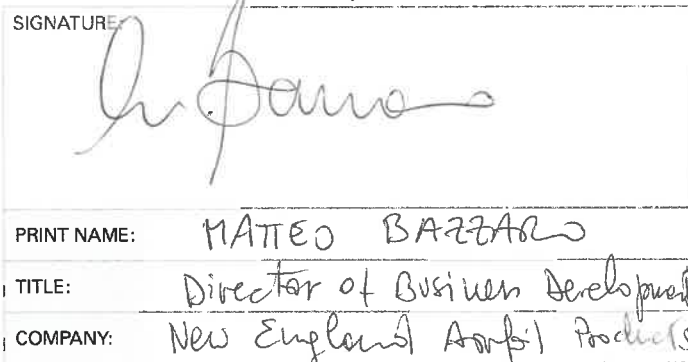 SIGNATURE:
PRINT NAME: MATTEO BAZZARO
TITLE: Director of Business Development
COMPANY: New England Airfoil Products